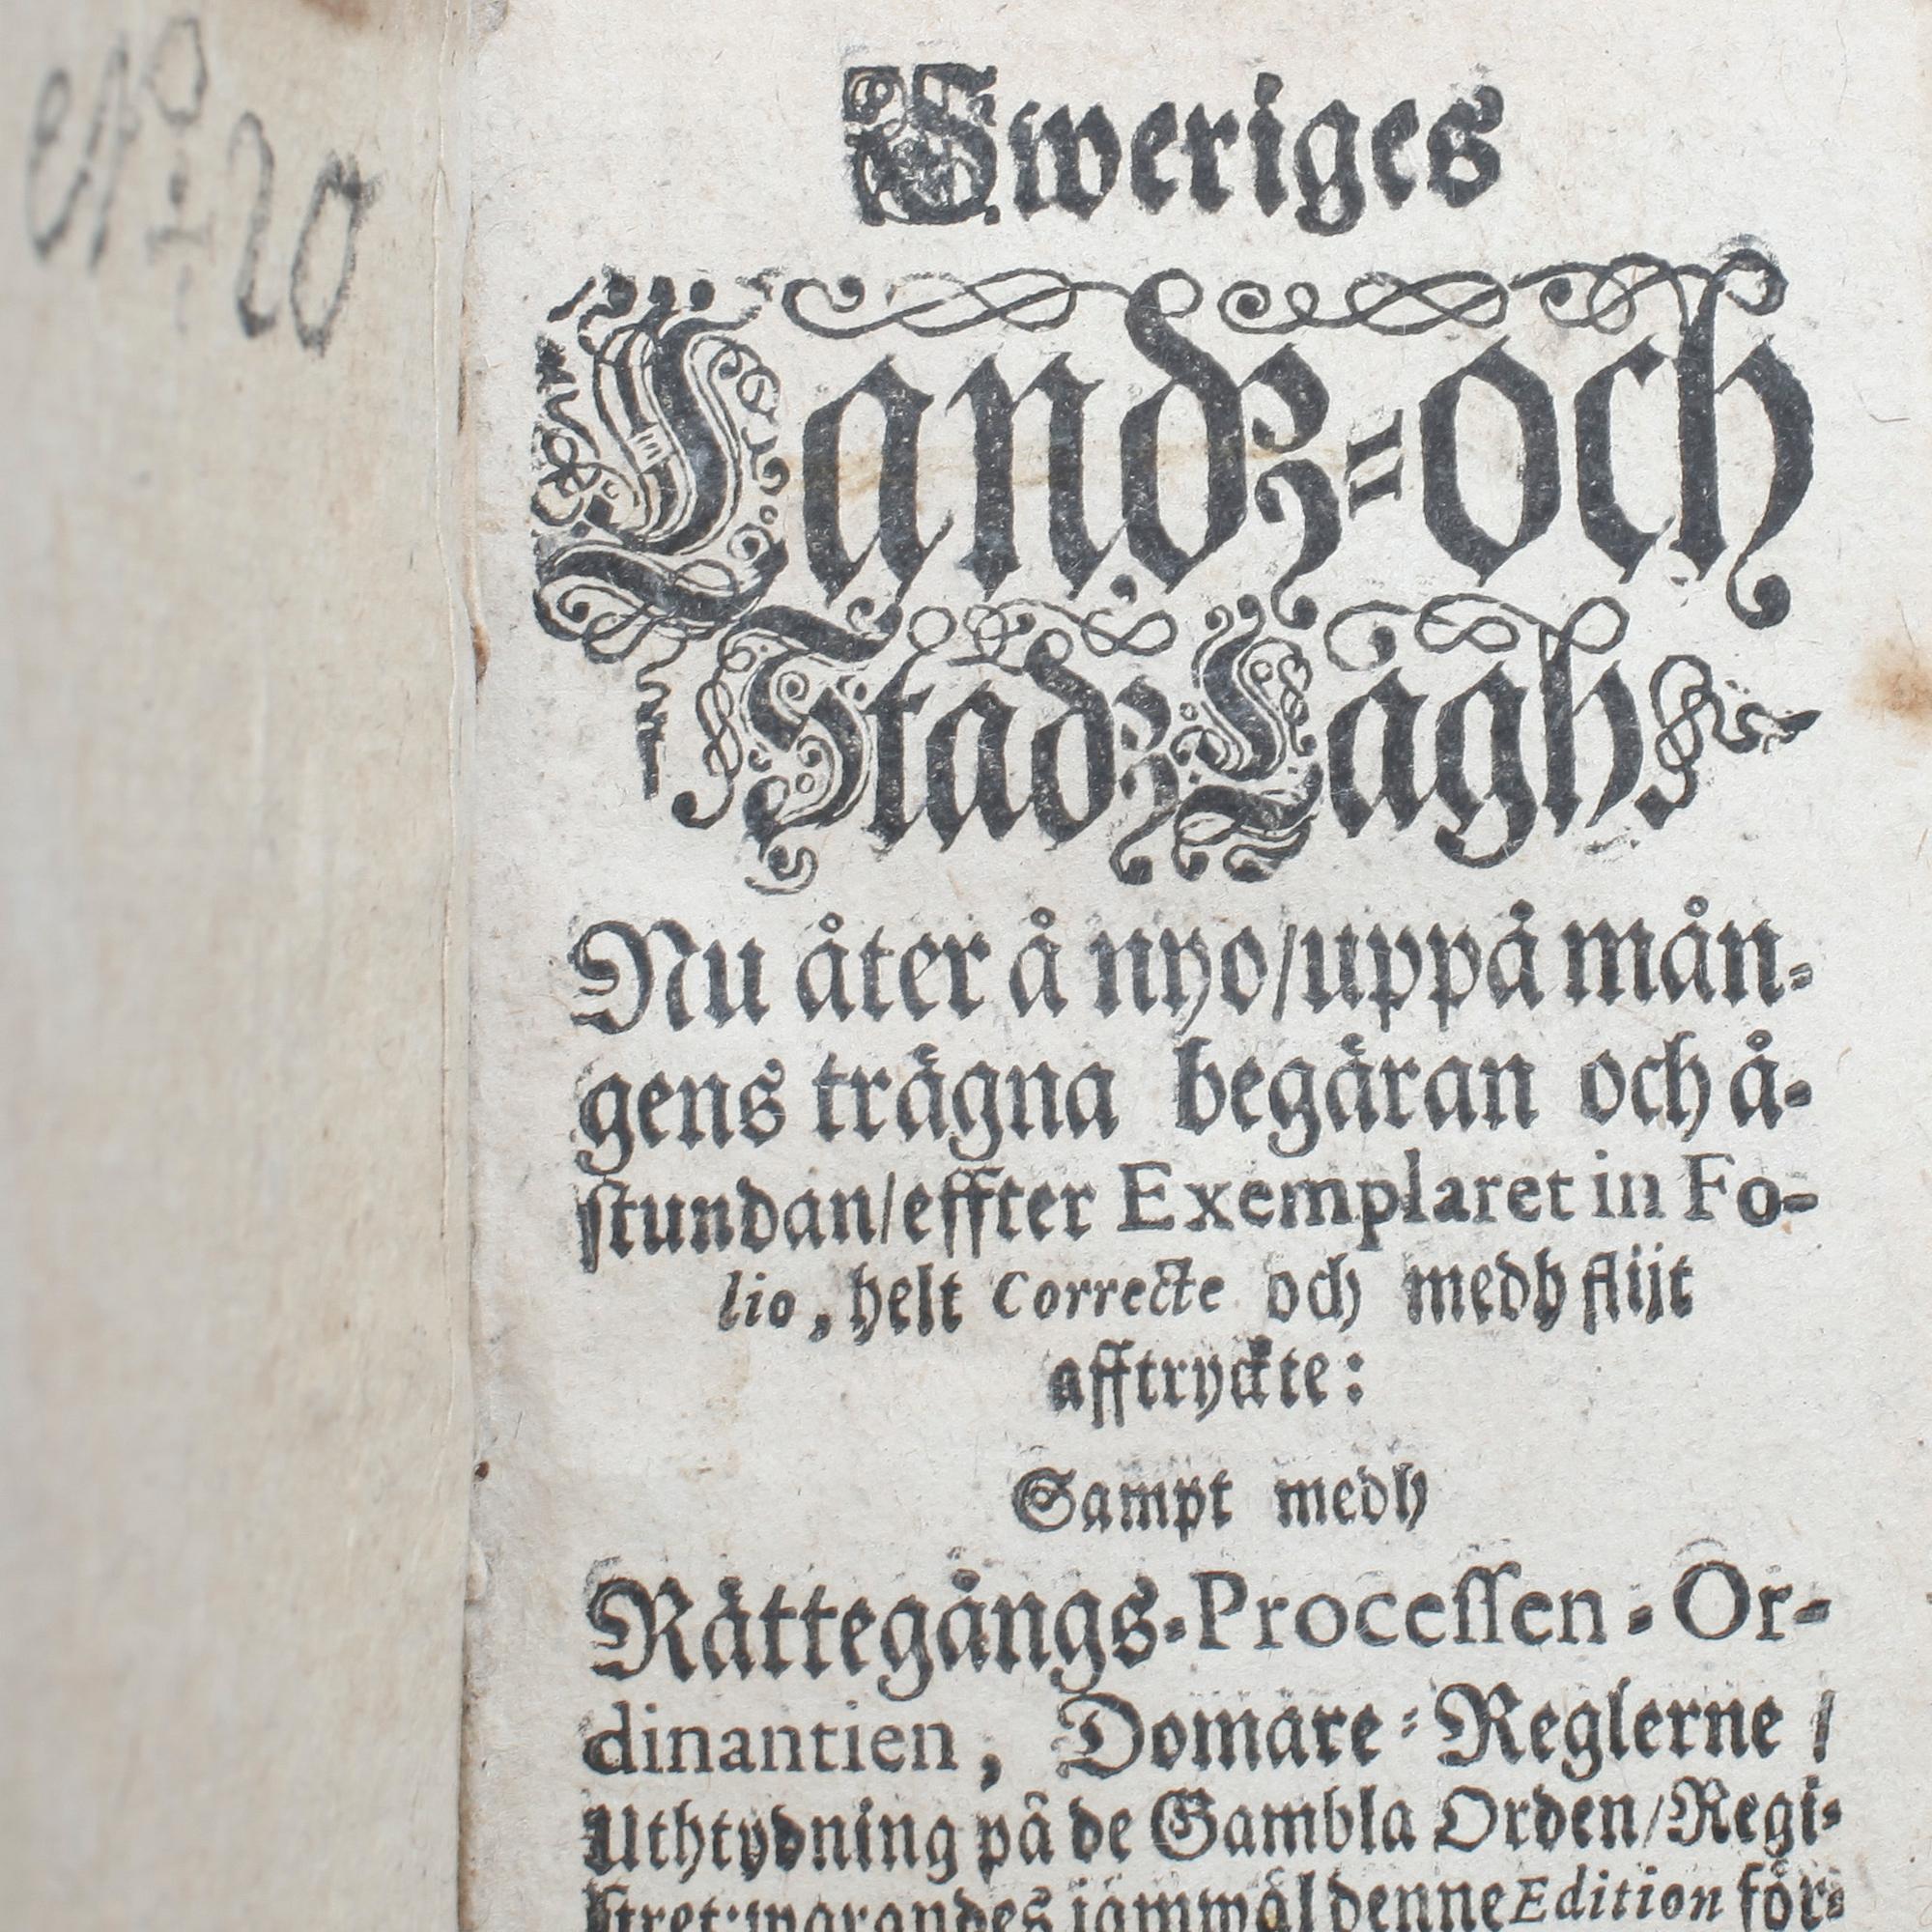 No 20
Sweriges
Landz=och
Stadz Lagh
Nu åter å nyo/uppå mån-
gens trägna begäran och å-
stundan/effter Exemplaret in Fo-
lio, helt Correcte och medh flijt
afftryckte:
Sampt medh
Rättegångs-Processen-Or-
dinantien, Domare-Reglerne /
Uthtydning på de Gambla Orden/Regi-
stret; warandes jämwäl denne Edition för-